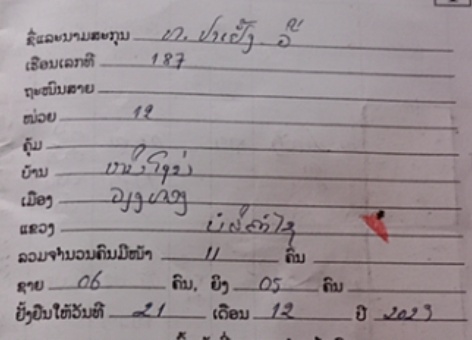 ຊື່ແລະນາມສະກຸນ ທ. ປາເຢັ້ງ ວື
ເຮືອນເລກທີ 187
ຖະໜົນສາຍ
ໜ່ວຍ 12
ຄຸ້ມ
ບ້ານ
ເມືອງ ວຽງທອງ
ແຂວງ ບໍລິຄຳໄຊ
ລວມຈຳນວນຄົນມີໜ້າ 11 ຄົນ
ຊາຍ 06 ຄົນ, ຍິງ 05 ຄົນ
ຢັ້ງຢືນໃຫ້ວັນທີ 21 ເດືອນ 12 ປີ 2023